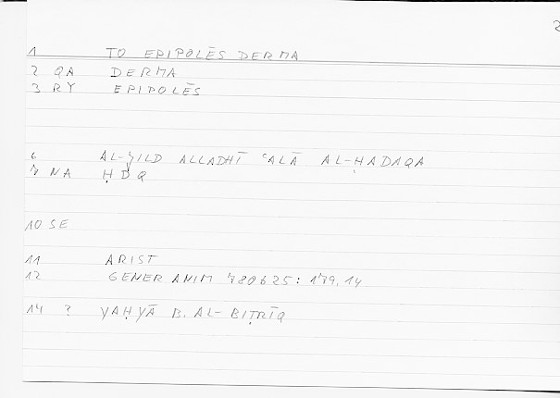 2
1 TO EPIPOLĒS DERMA
2 QA DERMA
3 RY EPIPOLĒS
6 AL-ǦILD ALLADHĪ ʿALĀ AL-ḤADAQA
7 NA ḤDQ
10 SE
11 ARIST
12 GENER ANIM 780b25: 179,14
14 ? YAḤYĀ B. AL-BIṬRĪQ